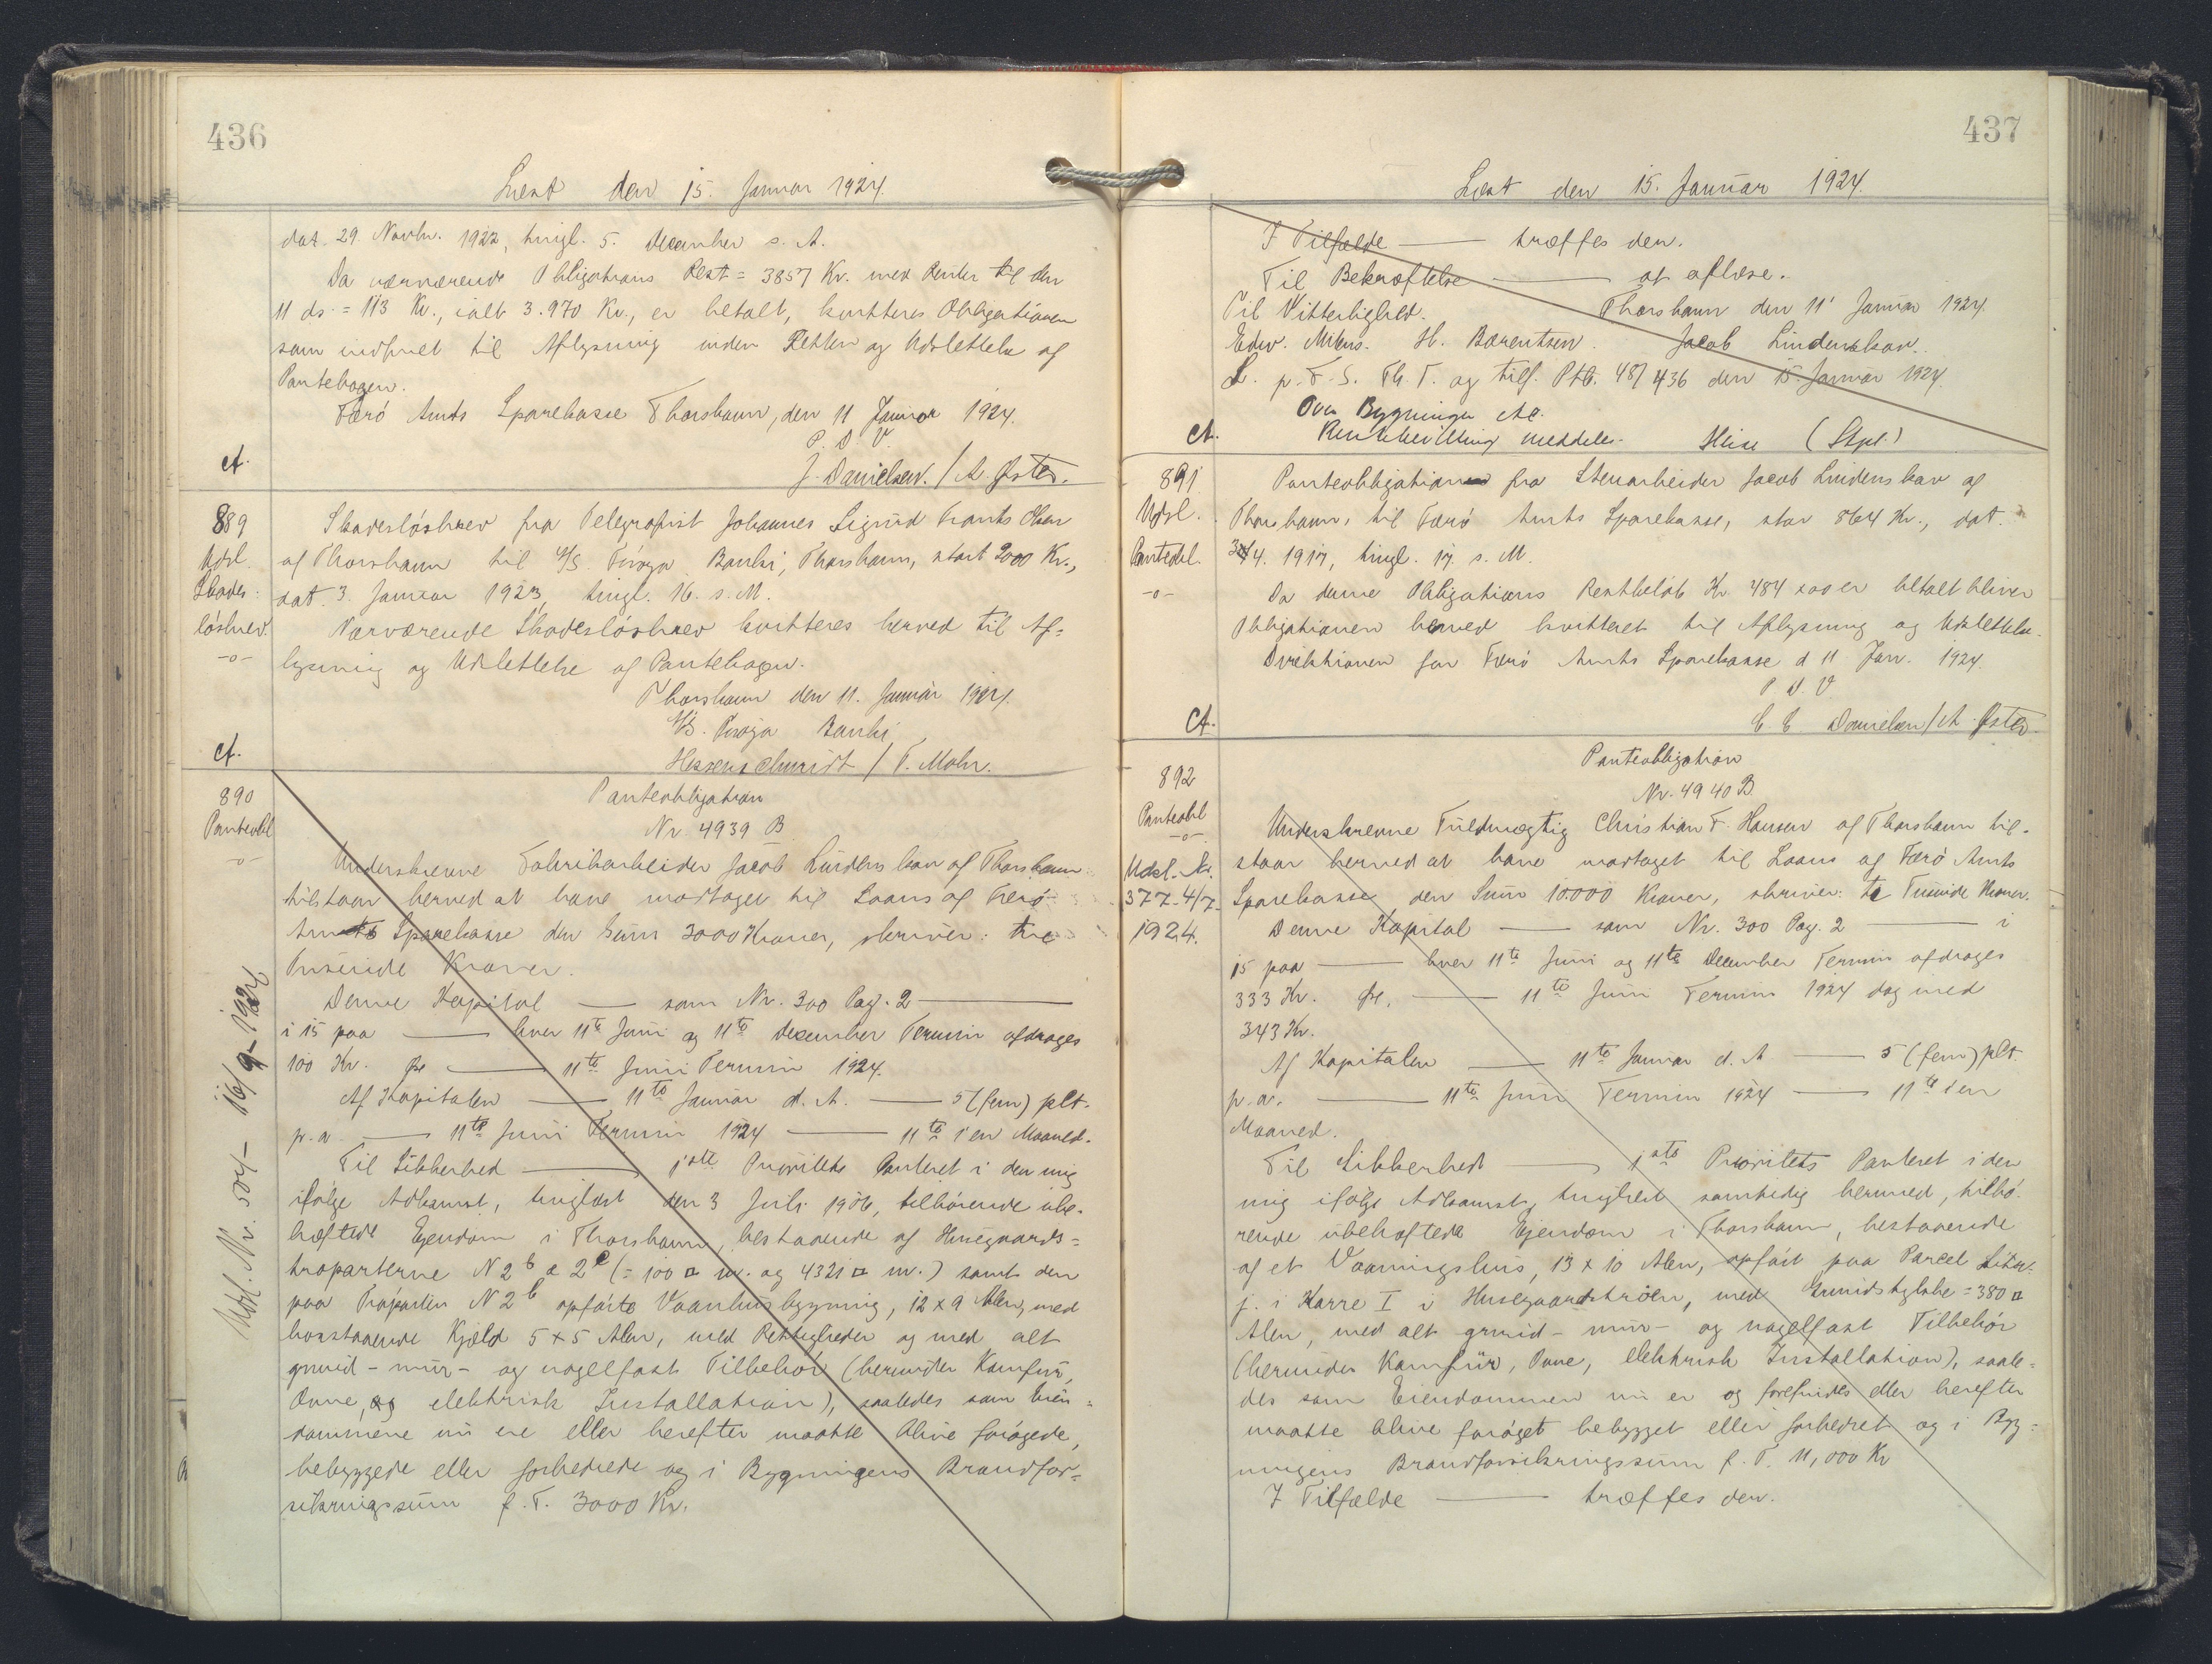 436
Læst den 15. Januar 1924.
dat. 29 Novbr. 1922, tingl. 5. December s. A.
Da nærværende Obligations Rest = 3857 Kr. med Renter til den
11 ds. = 113 Kr., ialt 3.970 Kr., er betalt, kvitteres Obligationen
som indfriet til Aflysning inden Retten og Udslettelse af
Pantebogen.
Færø Amts Sparekasse Thorshavn, den 11 Januar 1924.
P. D. V.
A.
J. Danielsen. / A Øster.
889
Udsl.
Skades:
løsbrev.
-o-
Skadesløsbrev fra Telegrafist Johannes Sigurd Frants Olsen
af Thorshavn til A/S. Føroya Banki, Thorshavn, stort 2000 Kr.,
dat. 3. Januar 1923, tingl. 16. s. M.
Nærværende Skadesløsbrev kvitteres herved til Af=
lysning og Udslettelse af Pantebogen.
Thorshavn den 11. Januar 1924.
A/S. Føroya Banki
A.
Hessenschmidt / P. Mohr.
890
Panteobl
-o-
Udsl. Nr. 504 - 16/9-1924
Panteobligation
Nr. 4939 B
Underskrevne Fabrikarbeider Jacob Lindenskov af Thorshavn
tilstaar herved at have modtaget til Laans af Færø
Amts Sparekasse den Sum 3000 Kroner, skriver: tre
Tusinde Kroner.
Denne Kapital —— som Nr. 300 Pag. 2 ——
i 15 paa —— hver 11te Juni og 11te December Termin afdrages
100 Kr. Øre —— 11te Juni Termin 1924.
Af Kapitalen —— 11te Januar d. A. —— 5 (fem) pCt.
p. a. —— 11te Juni Termin 1924 —— 11te i en Maaned.
Til Sikkerhed —— 1ste Prioritets Panteret i den mig
ifølge Adkomst, tinglæst den 3 Juli 1906, tilhørende ube-
hæftede Ejendom i Thorshavn, bestaaende af Husegaards=
troparterne N 2b a 2c (= 100 □ m. og 4321 □ m.) samt den
paa Troparten N 2b opførte Vaanhusbygning, 12 x 9 Alen, med
hosstaaende Kjeld 5 x 5 Alen, med Rettigheder og med alt
grund- mur- og nagelfast Tilbehør (herunder Komfur,
Ovne, og elektrisk Installation), saaledes som Eien=
dommene nu ere eller herefter maatte blive forøgede,
bebyggede eller forbedrede og i Bygningens Brandfor=
sikringssum f. T. 3000 Kr.
437
Læst den 15. Januar 1924.
I Tilfælde —— træffes den.
Til Bekræftelse —— at aflæse.
Til Vitterlighed. Thorshavn den 11' Januar 1924.
Edw. Mitens. H. Bærentsen. Jacob Lindenskov.
L. p. F. S. Th. T. og tilf. Ptb. 48/436 den 15. Januar 1924.
Ova Bygninger Ac.
A.
Rentebevilling meddeles. Heise (Stpl.)
891
Udsl.
Panteobl.
-o-
Panteobligation fra Stenarbeider Jacob Lindenskov af
Thorshavn, til Færø Amts Sparekasse, stor 864 Kr., dat.
3/4. 1917, tingl. 17. s. M.
Da denne Obligations Restbeløb Kr. 484 x 00 er betalt bliver
Obligationen herved kvitteret til Aflysning og Udslettelse.
Direktionen for Færø Amts Sparekasse d 11 Jan. 1924.
P. D. V
A.
C. C. Danielsen / A Øster.
892
Panteobl
-o-
Udsl. Nr.
377-4/7-
1924.
Panteobligation
Nr. 4940 B.
Underskrevne Fuldmægtig Christian F. Hansen af Thorshavn til-
staar herved at have modtaget til Laans af Færø Amts
Sparekasse den Sum 10.000 Kroner, skriver: ti Tusinde Kroner.
Denne Kapital —— som Nr. 300 Pag. 2 —— i
15 paa —— hver 11te Juni og 11te December Termin afdrages
333 Kr. Øre, —— 11te Juni Termin 1924 dog med
343 Kr.
Af Kapitalen —— 11te Januar d. A —— 5 (fem) pCt.
p. a. —— 11te Juni Termin 1924 —— 11te i en
Maaned.
Til Sikkerhed —— 1ste Prioritets Panteret i den
mig ifølge Adkomst, tinglæst samtidig hermed, tilhø-
rende ubehæftede Ejendom i Thorshavn, bestaaende
af et Vaaningshus, 13 x 10 Alen, opført paa Parcel Litr.
j. i Karre I i Husegaardstrøen, med Grundstykke = 380 □
Alen, med alt grund- mur- og nagelfast Tilbehør
(herunder Komfur, Ovne, elektrisk Installation), saale=
des som Eiendommen nu er og forefindes eller herefter
maatte blive forøget bebygget eller forbedret og i Byg=
ningens Brandforsikringssum f. T. 11,000 Kr
I Tilfælde —— træffes den.